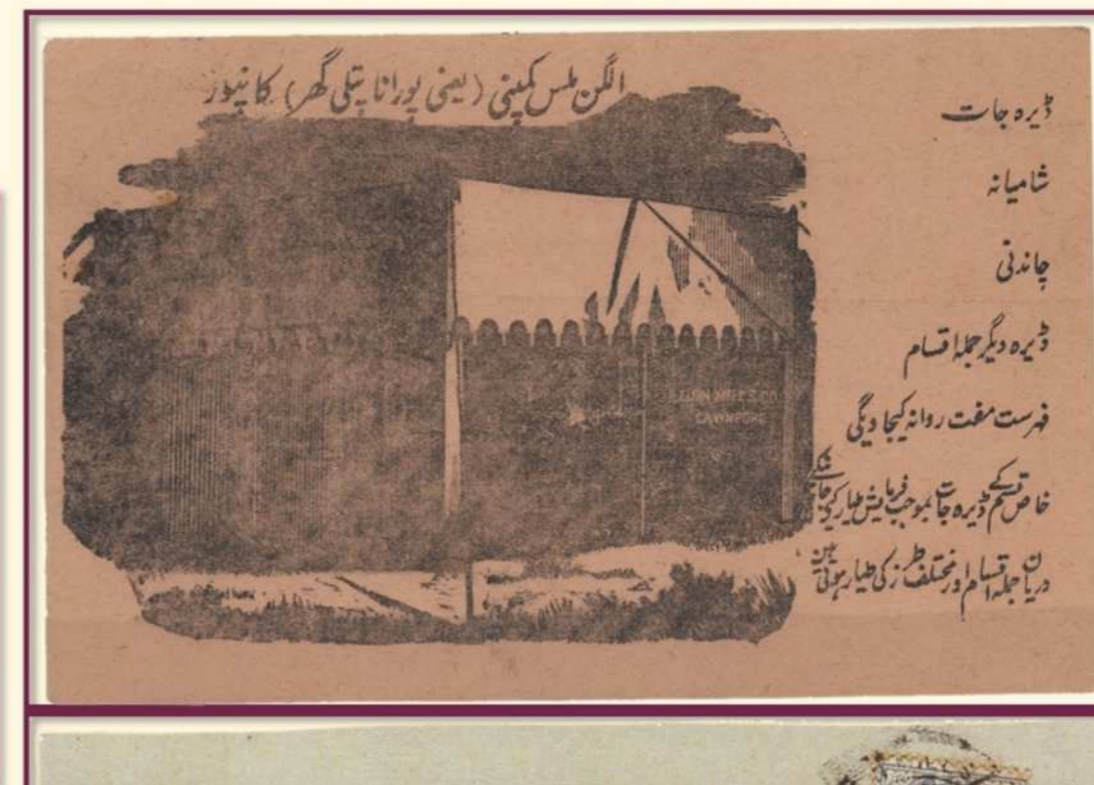 الگن ملس کمپنی (یعنی پورانا پتلی گھر) کانپور
ڈیرہ جات
شامیانہ
چاندنی
ڈیرہ دیگر جملہ اقسام
فہرست مفت روانہ کیجاویگی
خاص قسم کے ڈیرہ جات بموجب فرمایش طیار کئے جائینگے
دریان جملہ اقسام اور مختلف طرز کی طیار ہوتی ہین
ELGIN MILLS CO.
CAWNPORE